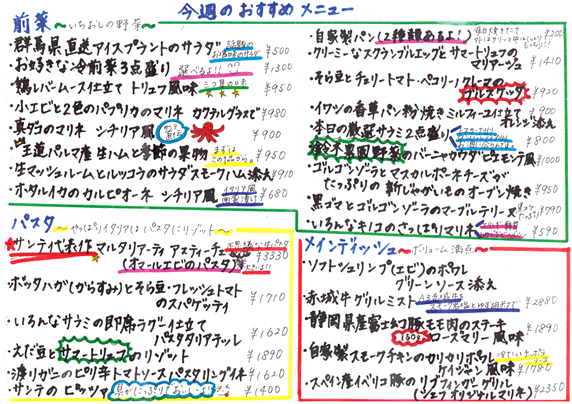 今週のおすすめ メニュー
前菜 〜いちおしの野菜〜
・群馬県直送アイスプラントのサラダ ¥500
・お好きな冷前菜3点盛り ¥1300
・鶏レバームース仕立て トリュフ風味 ¥950
・小エビと2色のパプリカのマリネ カクテルグラスで ¥980
・真ダコのマリネ シチリア風 ¥900
・王道パルマ産生ハムと季節の果物 ¥950
・生マッシュルームとルッコラのサラダスモークハム添え ¥910
・ホタルイカのカルピオーネ シチリア風 ¥680
・自家製パン(2種類あるよ!!) ¥200
・クリーミーなスクランブルエッグとサマートリュフの
マリアージュ ¥1410
・そら豆とチェリートマト・ペコリーノクレーマの
グルマゲッタ ¥920
・イワシの香草パン粉焼きミルフィーユ仕立て
オレンジ添え ¥900
・本日の厳選サラミ2点盛り ¥800
・鎌倉野菜のバーニャカウダ・ピエモンテ風 ¥1000
・ゴルゴンゾーラとマスカルポーネチーズが
たっぷりの新じゃがいものオーブン焼き ¥950
・黒ゴマとゴルゴンゾーラのマーブルテリーヌ ¥790
・いろんなキノコのさっぱりマリネ ¥590
パスタ 〜やっぱりイタリアはパスタにリゾット〜
サンテで手作りマルタリアーティ アスティーチェ ¥3330
(オマールエビのパスタ)
・ボッタルガ(からすみ)とそら豆・フレッシュトマト
のスパゲッティ ¥1710
・いろんなサラミの即席ラグー仕立て
パスタリアテッレ ¥1620
・えだ豆とサマートリュフのリゾット ¥1890
・渡りガニのピリ辛トマトソースパスタリングイネ ¥1620
・サンテのピッツァ ¥1400
メインディッシュ 〜ボリューム満点〜
・ソフトシュリンプ(エビ)のポワレ
グリーンソース添え
・赤城牛グリルミスト ¥2880
・静岡県産富士幻豚モモ肉のステーキ
160g ローズマリー風味 ¥1890
・自家製スモークチキンのカリカリポワレ
ケイジャン風味 ¥1780
・スペイン産イベリコ豚のリブフィンガーグリル
(シェフオリジナルマリネ) ¥2350